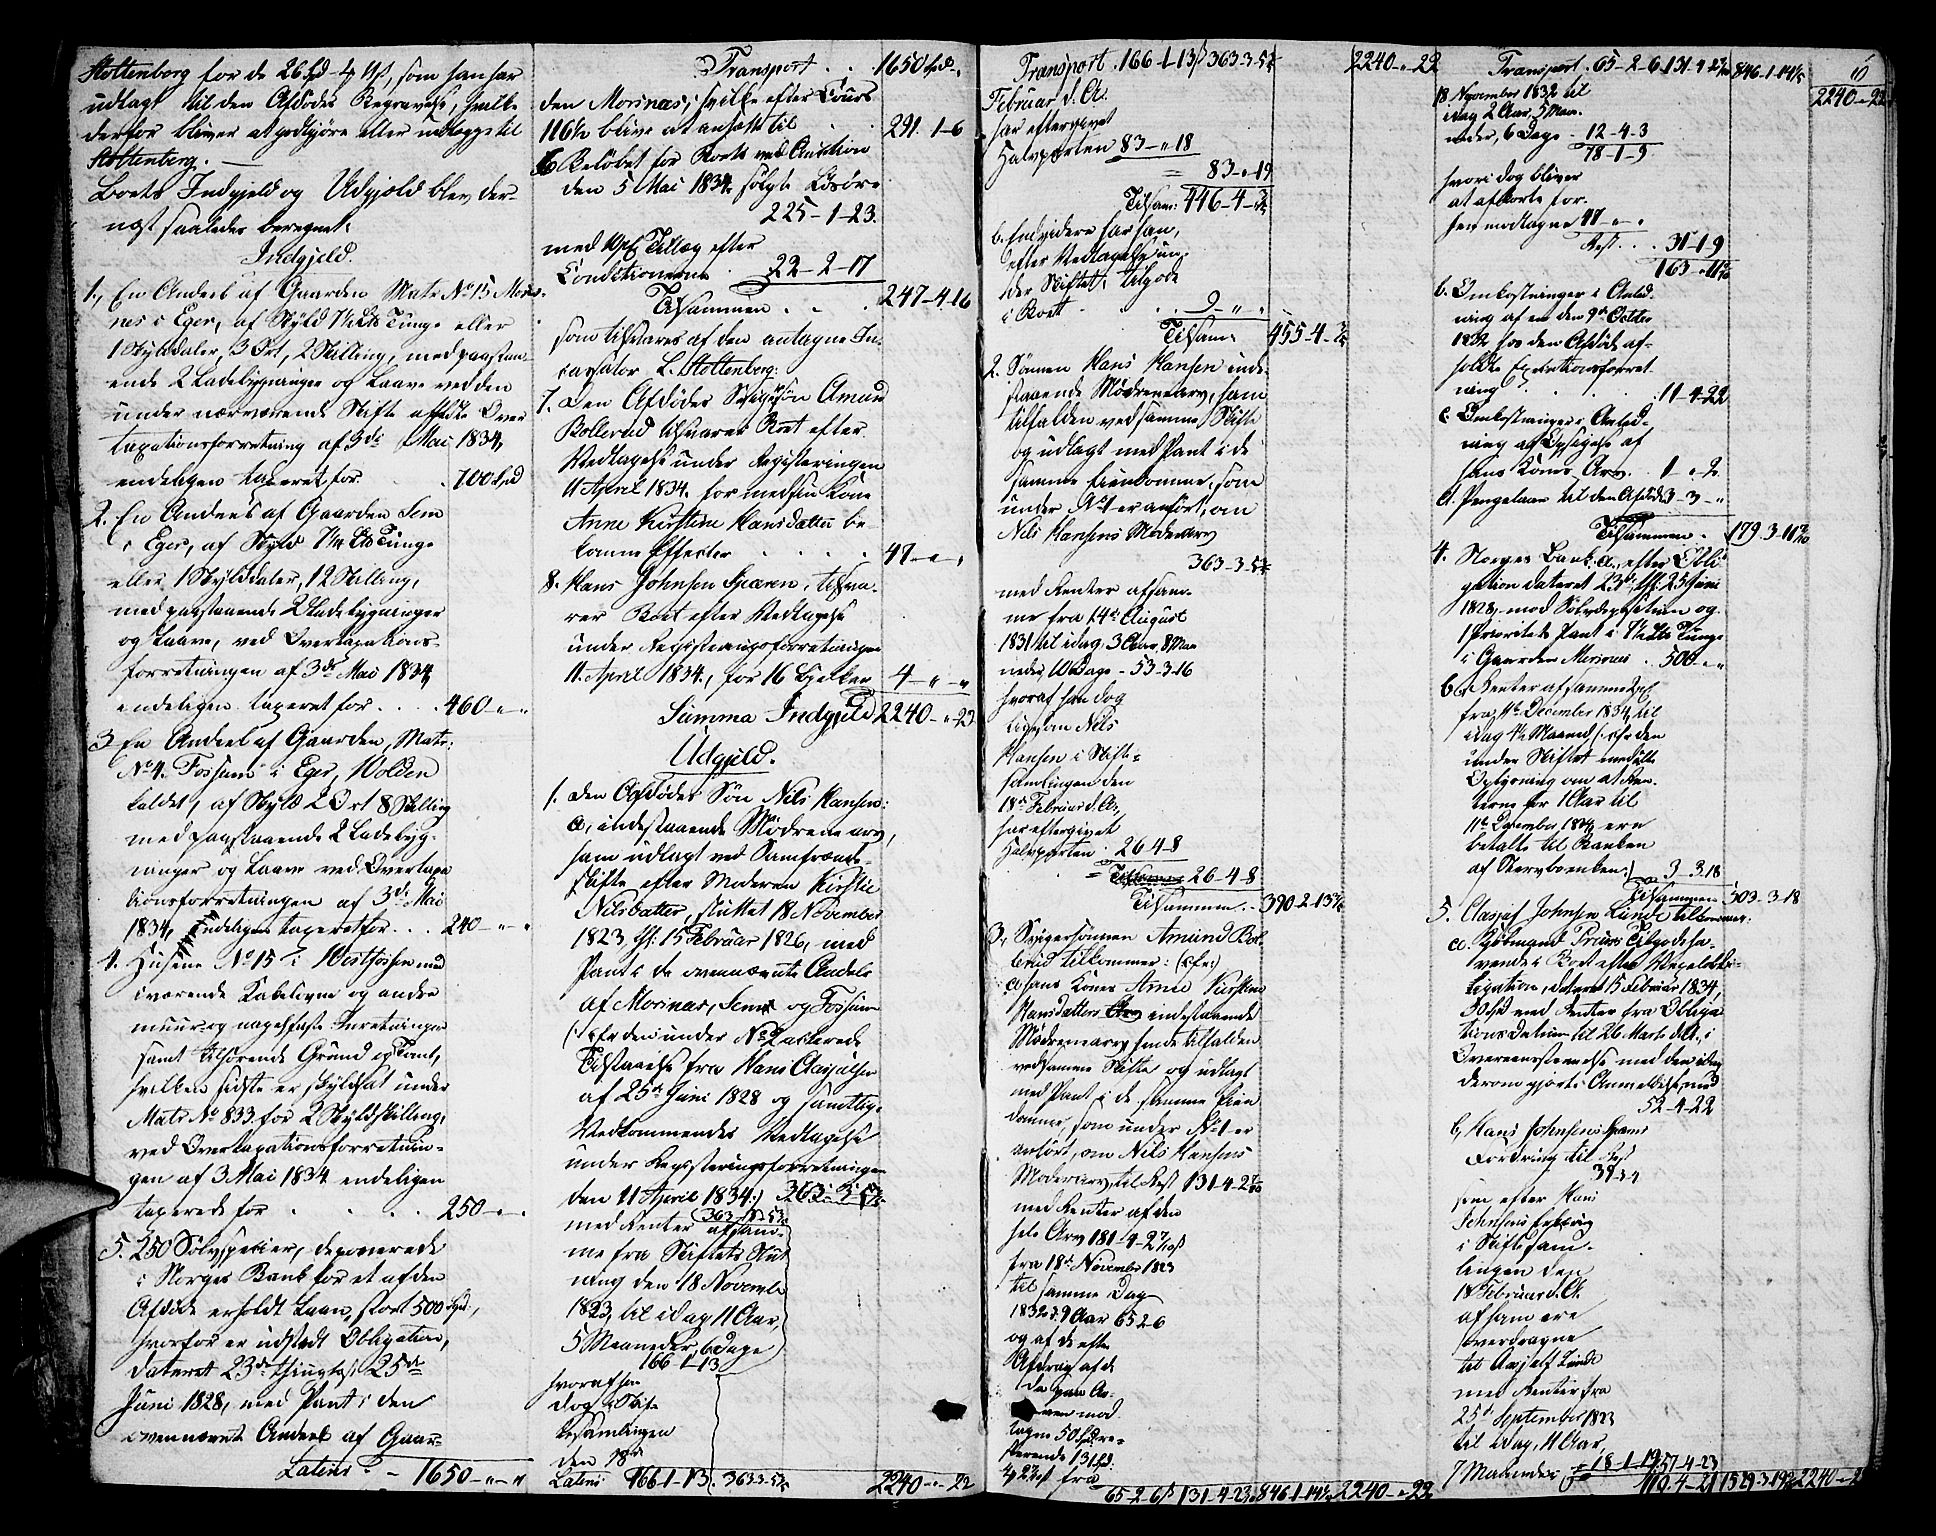 Stoltenberg for de 26 Spd - 4 ß, som han har
udlagt til den Afdødes Begravelse, hvilke
derfor bliver at godtgjøre eller udlægges til
Stoltenberg. —
Boets Indgjeld og Udgjeld blev der-
næst saaledes beregnet:
Indgjeld.
1., En Andeel af Gaarden Matr. No 15 Meri-
næs i Eger, af Skyld Tunge eller
1 Skylddaler, 3 Ort, 2 Skilling, med paastaa-
ende 2 Ladebygninger og Laave ved den
under nærværende Skifte afholdte Over
taxationsforretning af 3de Mai 1834,
endeligen taxeret for 700 Spd
2. En Andeel af Gaarden Sem
i Eger, af Skyld Tunge
eller 1 Skylddaler, 12 Skilling,
med paastaaende 2 Ladebygninger
og Laave, ved Overtaxations-
forretningen af 3de Mai 1834,
endeligen taxeret for . . . . 460 - " - "
3. En Andeel af Gaarden, Matr:
No 4. Fossum i Eger, Volden
kaldet, af Skyld 2 Ort 8 Skilling
med paastaaende 2 Ladebyg-
ninger og Laave ved Overtaxa
tionsforretningen af 3de Mai
1834, endeligen taxeret for . . . 240 - " - "
4. Husene No 15 i Vestfossen med
iværende Kakelovne og andre
muur- og nagelfaste Indretninger
samt tilhørende Grund og Tomt,
hvilken sidste er skyldsat under
Matr. No 833 for 2 Skyldskilling,
ved Overtaxationsforretnin-
gen af 3 Mai 1834 endeligen
taxerede for . . . . 250 - " - "
5. 250 Sølvspecier, deponerede
i Norges Bank for et af den
Afdøde erholdt Laan, stort 500 Spd,
hvorfor er udstedt Obligation,
dateret 23de thinglæst 25de
Juni 1828, med Pant i den
ovennævnte Andeel af Gaar-
Lateris - 1650 - " - "
Transport . . 1650 Spd
den Merinæs, hvilke efter Cours
116½ blive at ansætte til . . 291. 1 - 6
6. Beløbet for Boets ved Auction
den 5 Mai 1834. solgte Løsøre
225 - 1 - 23.
med Tillæg efter
Conditionerne . 22 - 2 - 17
Tilsammen . . . 247 - 4. 16
som tilsvares af den antagne In-
cassator L. Stoltenberg.
7. Den Afdødes Svigersøn Amund
Bollerud tilsvarer Boet efter
Vedtagelse under Registeringen
11 April 1834. for med sin Kone
Anne Kirstine Hansdatter be-
komne Effecter . . . . 47 - " - "
8. Hans Johnsen Sparen, tilsva-
rer Boet efter Vedtagelse
under Registeringsforretningen
11 April 1834., for 16 Bjelker 4 - " - "
Summa Indgjeld 2240 - " - 23
Udgjeld.
1. Den Afdødes Søn Nils Hansen:
a, indestaaende Mødrene arv,
ham udlagt ved Samfrænde-
skifte efter Moderen Kirstie
Nilsdatter, sluttet 18 November
1823, thl: 15 Februar 1826, med
Pant i de ovennævnte Andele
af Merinæs, Sem og Fossum
(cfr den under No 2 acterede
Tilstaaelse fra Hans Clasjulsen
af 25de Juni 1828 og samtlige
Vedkommendes Vedtagelse
under Registeringsforretningen
den 11 April 1834:) 363 - 3 - 5⅗
363 - 3 - 5⅗
med Renter afsam-
me fra Skiftets Slut
ning den 18 Novembr
1823, til idag 11 Aar,
5 Maaneder, 6 Dage
166 - 1 - 13
hvoraf han
dog i Skif-
tesamlingen
den 18de
Lateris 166. 1 - 13. 363. 3 - 5⅗ 2240 - " - 22
Transport . 166 - 1 - 13 ß 363 - 3 - 5⅗ 2240 - " 22
Februar d. A.
har eftergivet
Halvparten 83 - " 18
= 83 - " 19
Tilsam: 446 - 4 -
b. Endvidere har han,
efter Vedtagelse un-
der Skiftet, tilgode
i Boet . . . 9 - " "
Tilsam: 455 - 4 -
2. Sønnen Hans Hansen inde-
staaende Mødrenearv, ham
tilfalden ved samme Skifte
og udlagt med Pant i de
samme Eiendomme, som
under No 1 er anført, om
Nils Hansens Mødrearv
363 - 3 - 5⅗
med Renter afsam-
me fra 14de August
1831 til idag, 3 Aar, 8 Maa
neder, 10 Dage - 53 - 3 - 16
hvoraf han dog
ligesom Nils
Hansen i Skifte-
samlingen den
18de Februar d. A:,
har eftergivet
Halvparten . 26 - 4 - 8
= 26 - 4 - 8
Tilsammen . . 390 - 2 - 13
3., Svigersønnen Amund Bol-
lerud tilkommer: (cfr:)
a, hans Kones Anne Kirstine
Hansdatters indestaaende
Mødrenearv hende tilfalden
ved samme Skifte og udlagt
med Pant i de samme Eien
domme, som under No 1 er
anført, om Nils Hansens
Mødrearv, til Rest 131 - 4 - 2
med Renter af den
hele Arv 181 - 4 - 2
fra 18de November 1823
til samme Dag
1832 : 9 Aar 65 2 6
og af de efter
Afdrag af de
da paa Ar-
ven mod-
tagne 50 Spd re-
sterende 131 Spd
4 ß fra
65 - 2 - 6 ß 131 - 4 - 23 846 - 1 - 14 2240 - " - 22
Transport . 65 - 2 - 6 131 - 4 - 2 846 - 1 - 14
2240 - " - 22
18 November 1832 til
idag 2 Aar 5 Maa-
neder, 6 Dage - 12 - 4 - 3
78 - 1 - 9
hvori dog bliver
at afkorte for-
hen modtagne 47 - " -
Rest . . . 31 - 1 - 9
163 - " 11
b. Omkostninger i Anled-
ning af en den 9de October
1832 hos den Afdøde af-
holdte Executionsforret-
ning . . . . 11 - 4 - 22
c. Omkostninger i Anled-
ning af Opsigelse af
hans Kones Arv. . 1 - " 2
d. Pengelaan til den Afdøde 3 - 3 - "
Tilsammen . 179. 3 - 11
4. Norges Bank: a., efter Obli-
gation dateret 23de, thl: 25 Juni
1828, mod Sølvdeposition og
1 Prioritets Pant i Tunge
i Gaarden Merinæs . 500 - " "
b. Renter af samme
fra 11te December 1834, til
idag 4½ Maaned (: cfr den
under Skiftet meddelte
Oplysning om at Ren-
terne for 1 Aar til
11te December 1834, ere
betalte til Banken
af Sterboenken:) 3 - 3. 18
Tilsammen - 503 - 3 - 18
5. Clasjul Johnsen Lunde tilkommer:
a. Kjøbmand Tilgodeha-
vende i Boet efter Vexelobli-
gation, dateret 15 Februar 1834,
50 Spd med Renter fra Obliga
tionsdatum til 26 Marts d A: i
Overeensstemmelse med den idag
derom gjorte Anmeldelse, med
52 - 4 - 22
b, Hans Johnsen Sparens
Fordring til Rest
39 - " 4
som, efter Hans
Johnsens Erklæring
i Skiftesam-
lingen den
18 Februar d. A.
af ham ere
overdragne
til Clasjul Lunde
med Renter fra
25de September 1823
til idag, 11 Aar,
7 Maaneder 18 - 1 - 19 57 - 4 - 23
110. 4 - 21 1529. 3 - 19 2240 - " - 22